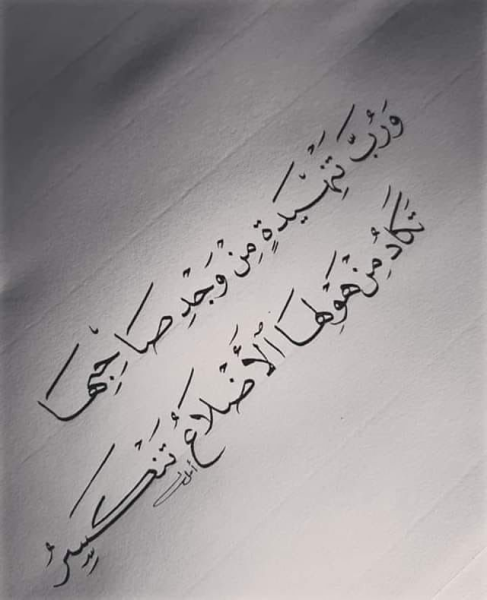 وَرُبَّ تَنْهِيدَةٍ مِنْ وَجْدِ صَاحِبِهَا
تَكَادُ مِنْ هَوْلِهَا الْأَضْلَاعُ تَنْكَسِرُ